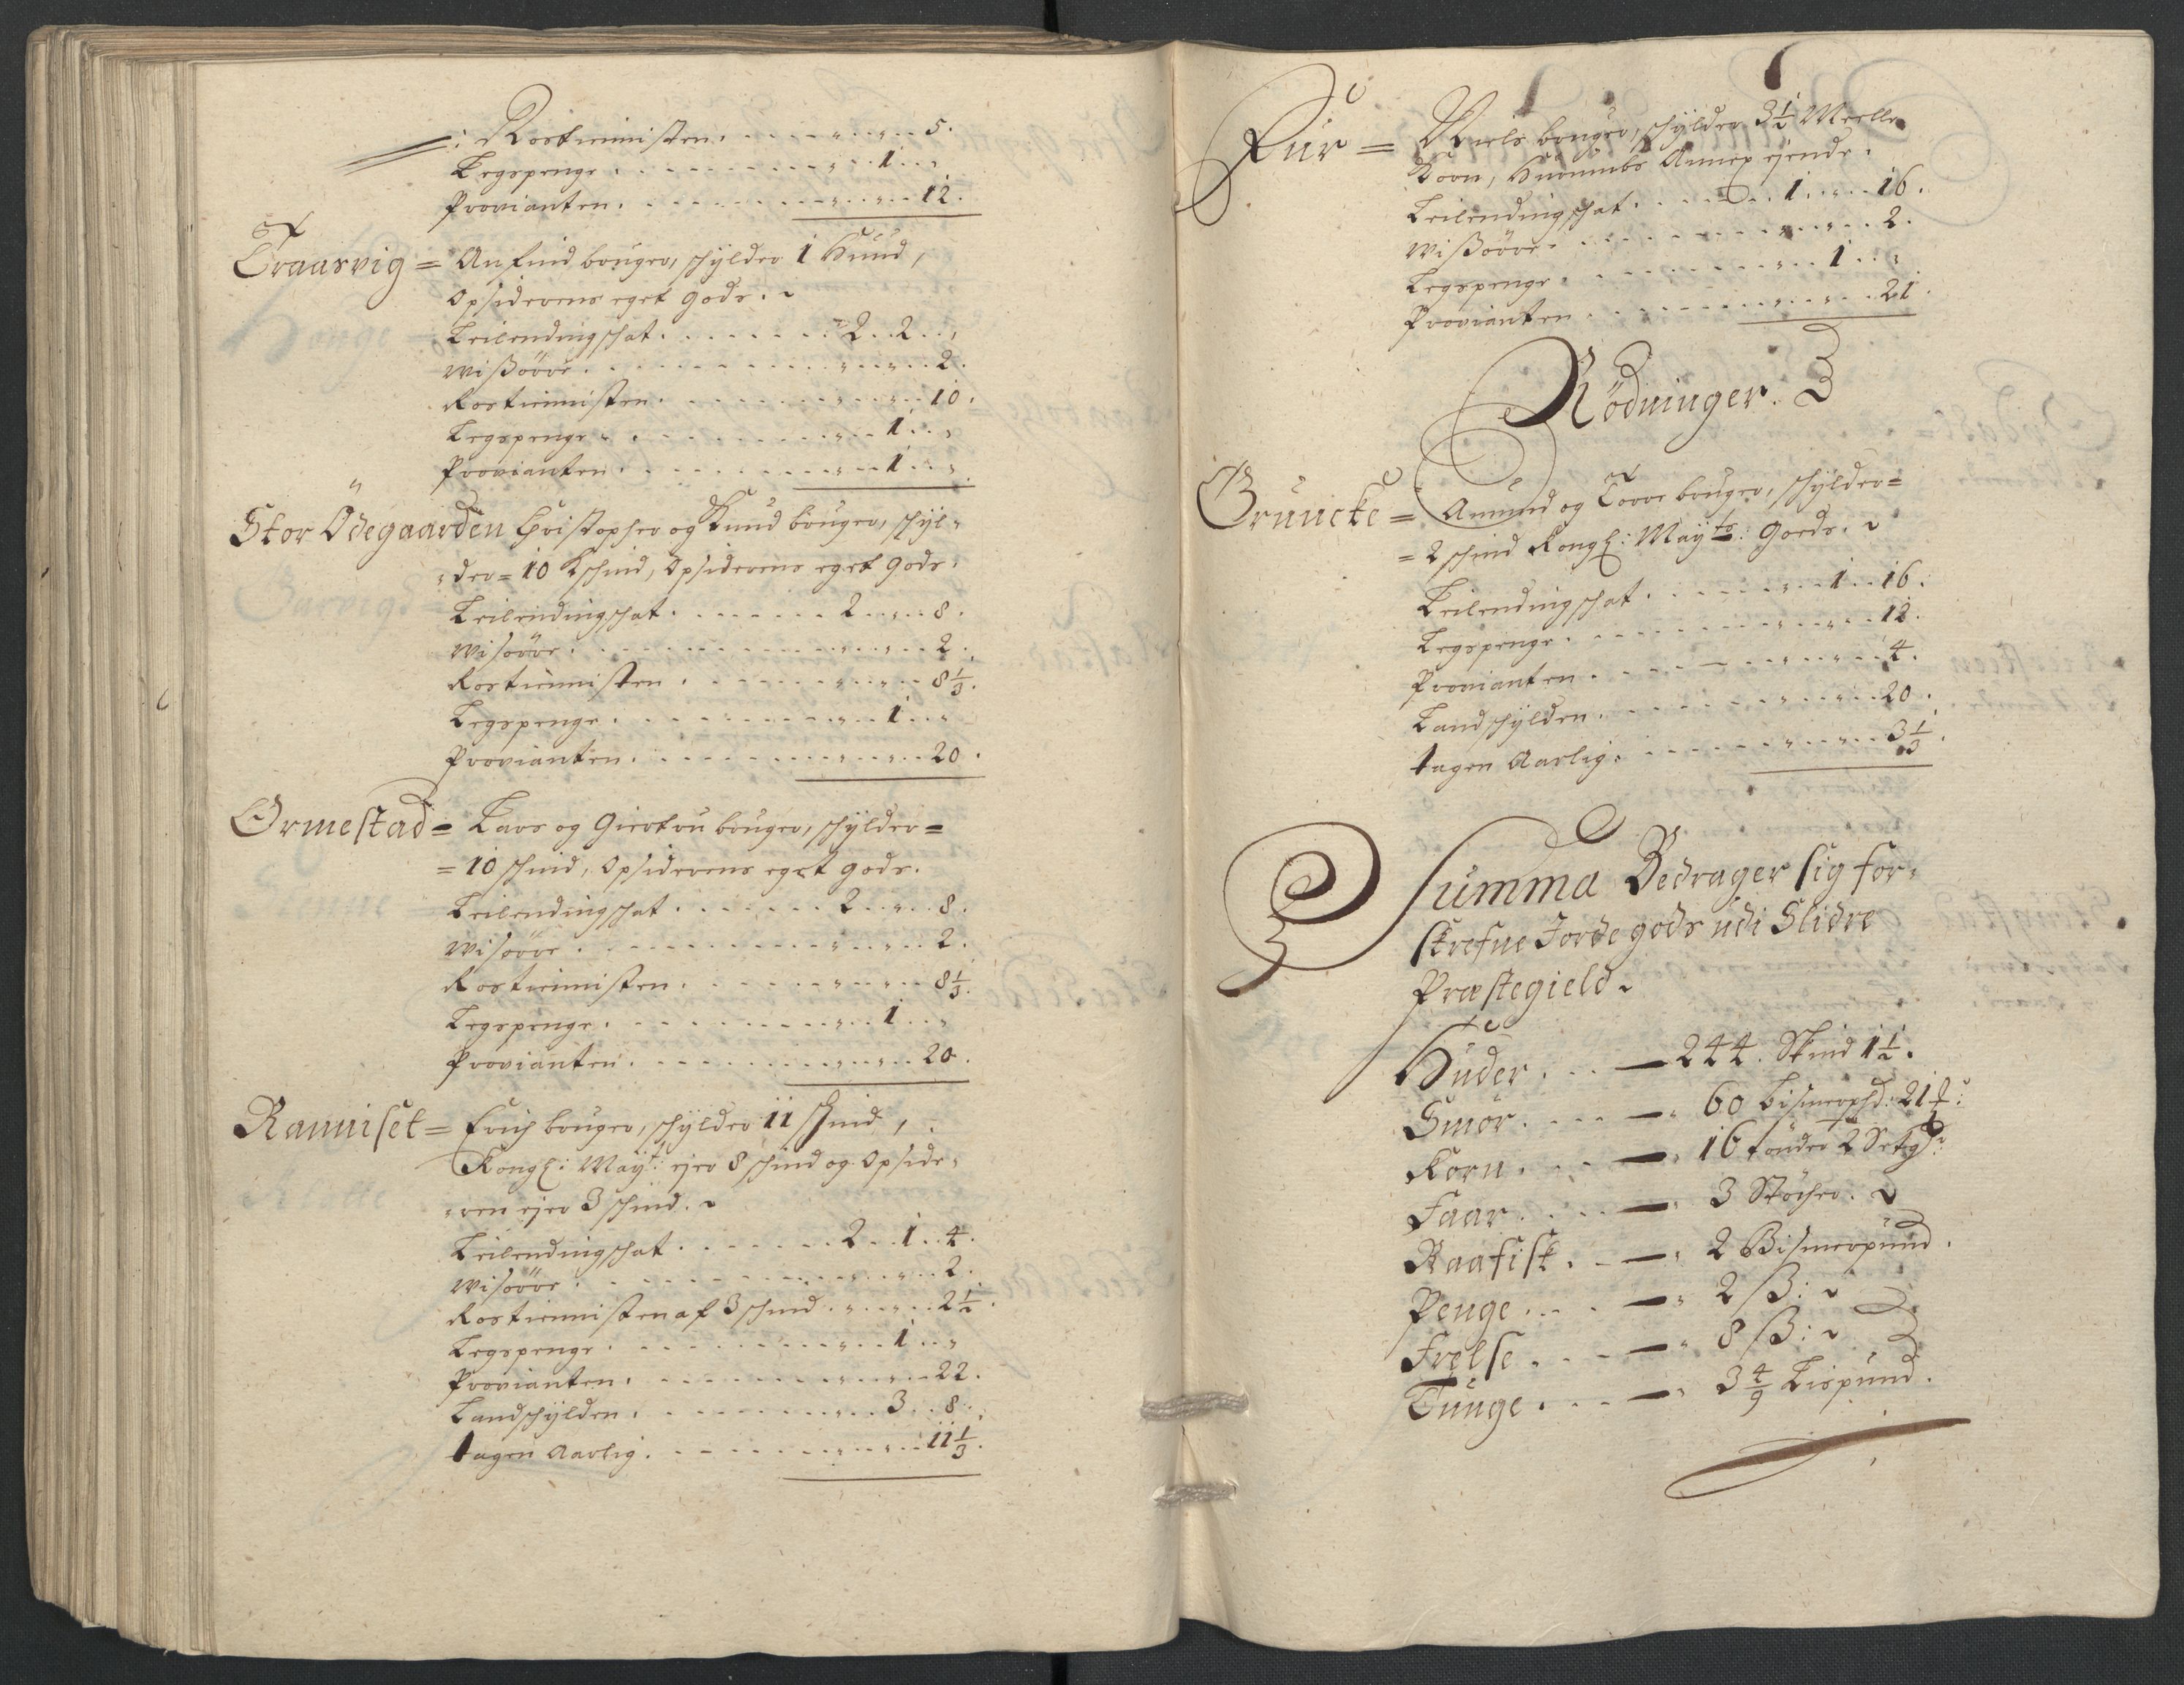 Rostienisten . . . " . . " . . 5.
Legspenge . . . " . . 1 . . "
Provianten . . . " . . " . . 12.
Traasvig = Anfind bruger, schylder 1 Huud,
Opsiderens eget gods.
Leilendingschat . . . 2 . . 2 . . "
Wissøøre . . . " . . " . . 2.
Rostienisten . . . " . . " . . 10.
Legspenge . . . " . . 1 . . "
Provianten . . . " . . 1 . . "
Stor Ödegaarden Christopher og Knud bruger, schyl-
der = 10 Kschind, Opsiderens eget gods.
Leilendingschat . . . 2 . . " . . 8.
Wisøøre . . . " . . " . . 2.
Rostienisten . . . " . . " . . 8 1/3.
Legspenge . . . " . . 1 . . "
Provianten . . . " . . " . . 20.
Ormestad = Lars og Giertru bruger, schylder =
= 10 schind, Opsiderens eget gods.
Leilendingschat . . . 2 . . " . . 8.
Wisøøre . . . " . . " . . 2.
Rostienisten . . . " . . " . . 8 1/3.
Legspenge . . . " . . 1 . . "
Provianten . . . " . . " . . 20.
Ranniset = Erich bruger, schylder 11 schind,
Kongl: Mayt: ejer 8 schind og Opside-
ren ejer 3 schind.
Leilendingschat . . . 2 . . 1 . . 4.
Wisøøre . . . " . . " . . 2.
Rostienisten af 3 schind . " . . " . . 2 1/2.
Legspenge . . . " . . 1 . . "
Provianten . . . " . . " . . 22.
Landschylden . . . " . . 3 . . 8.
tagen Aarlig . . . " . . " . . 11 1/3.
Fur = Niels bruger, schylder 3 1/2 Meelle
Korn, Hurumbs Annex ejende.
Leilendingschat . . . 1 . . " . . 16.
Wissøøre . . . " . . " . . 2.
Legspenge . . . " . . 1 . . "
Provianten . . . " . . " . . 21.
Rödninger. 3
Gruncke = Amund og Torre bruger, schylder =
= 2 schind Kongl: Mayts: Goeds.
Leilendingschat . . . " . . 1 . . 16.
Legspenge . . . " . . " . . 12.
Provianten . . . " . . " . . 4.
Landschylden . . . " . . " . . 20.
tagen Aarlig . . . " . . " . . 3 1/3.
Summa Bedrager sig for-
skrefne Jorde gods udi Slidre
Præstegield.
Huder . . . — 244. Skind 1 1/2.
Smör . . . — " 60 bismerpd: 21
Korn . . . — " 16 tønder 2
Faar . . . — " 3 Støcher.
Raafisk . — " 2 Bismerpund.
Penge . . . — " 2 ß:
Frelse . . . — " 8 ß:
Tunge . . . — " 3 4/9 Lispund.